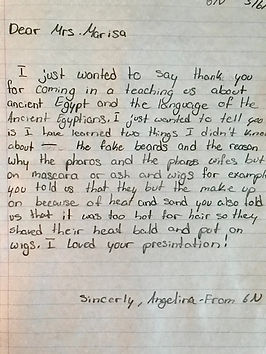 6N
Dear Mrs. Marisa
I just wanted to say thank you
for coming in a teaching us about
ancient Egypt and the language of the
Ancient Egyptians. I just wanted to tell you
is I have learned two things I didn't know
about the fake beards and the reason
why the pharos and the pharos wifes but
on mascara or ash and wigs for example
you told us that they but the make up
on because of heat and sand you also told
us that it was too hot for hair so they
shaved their head bald and put on
wigs. I loved your presintation!
Sincerly, Angelina-From 6N